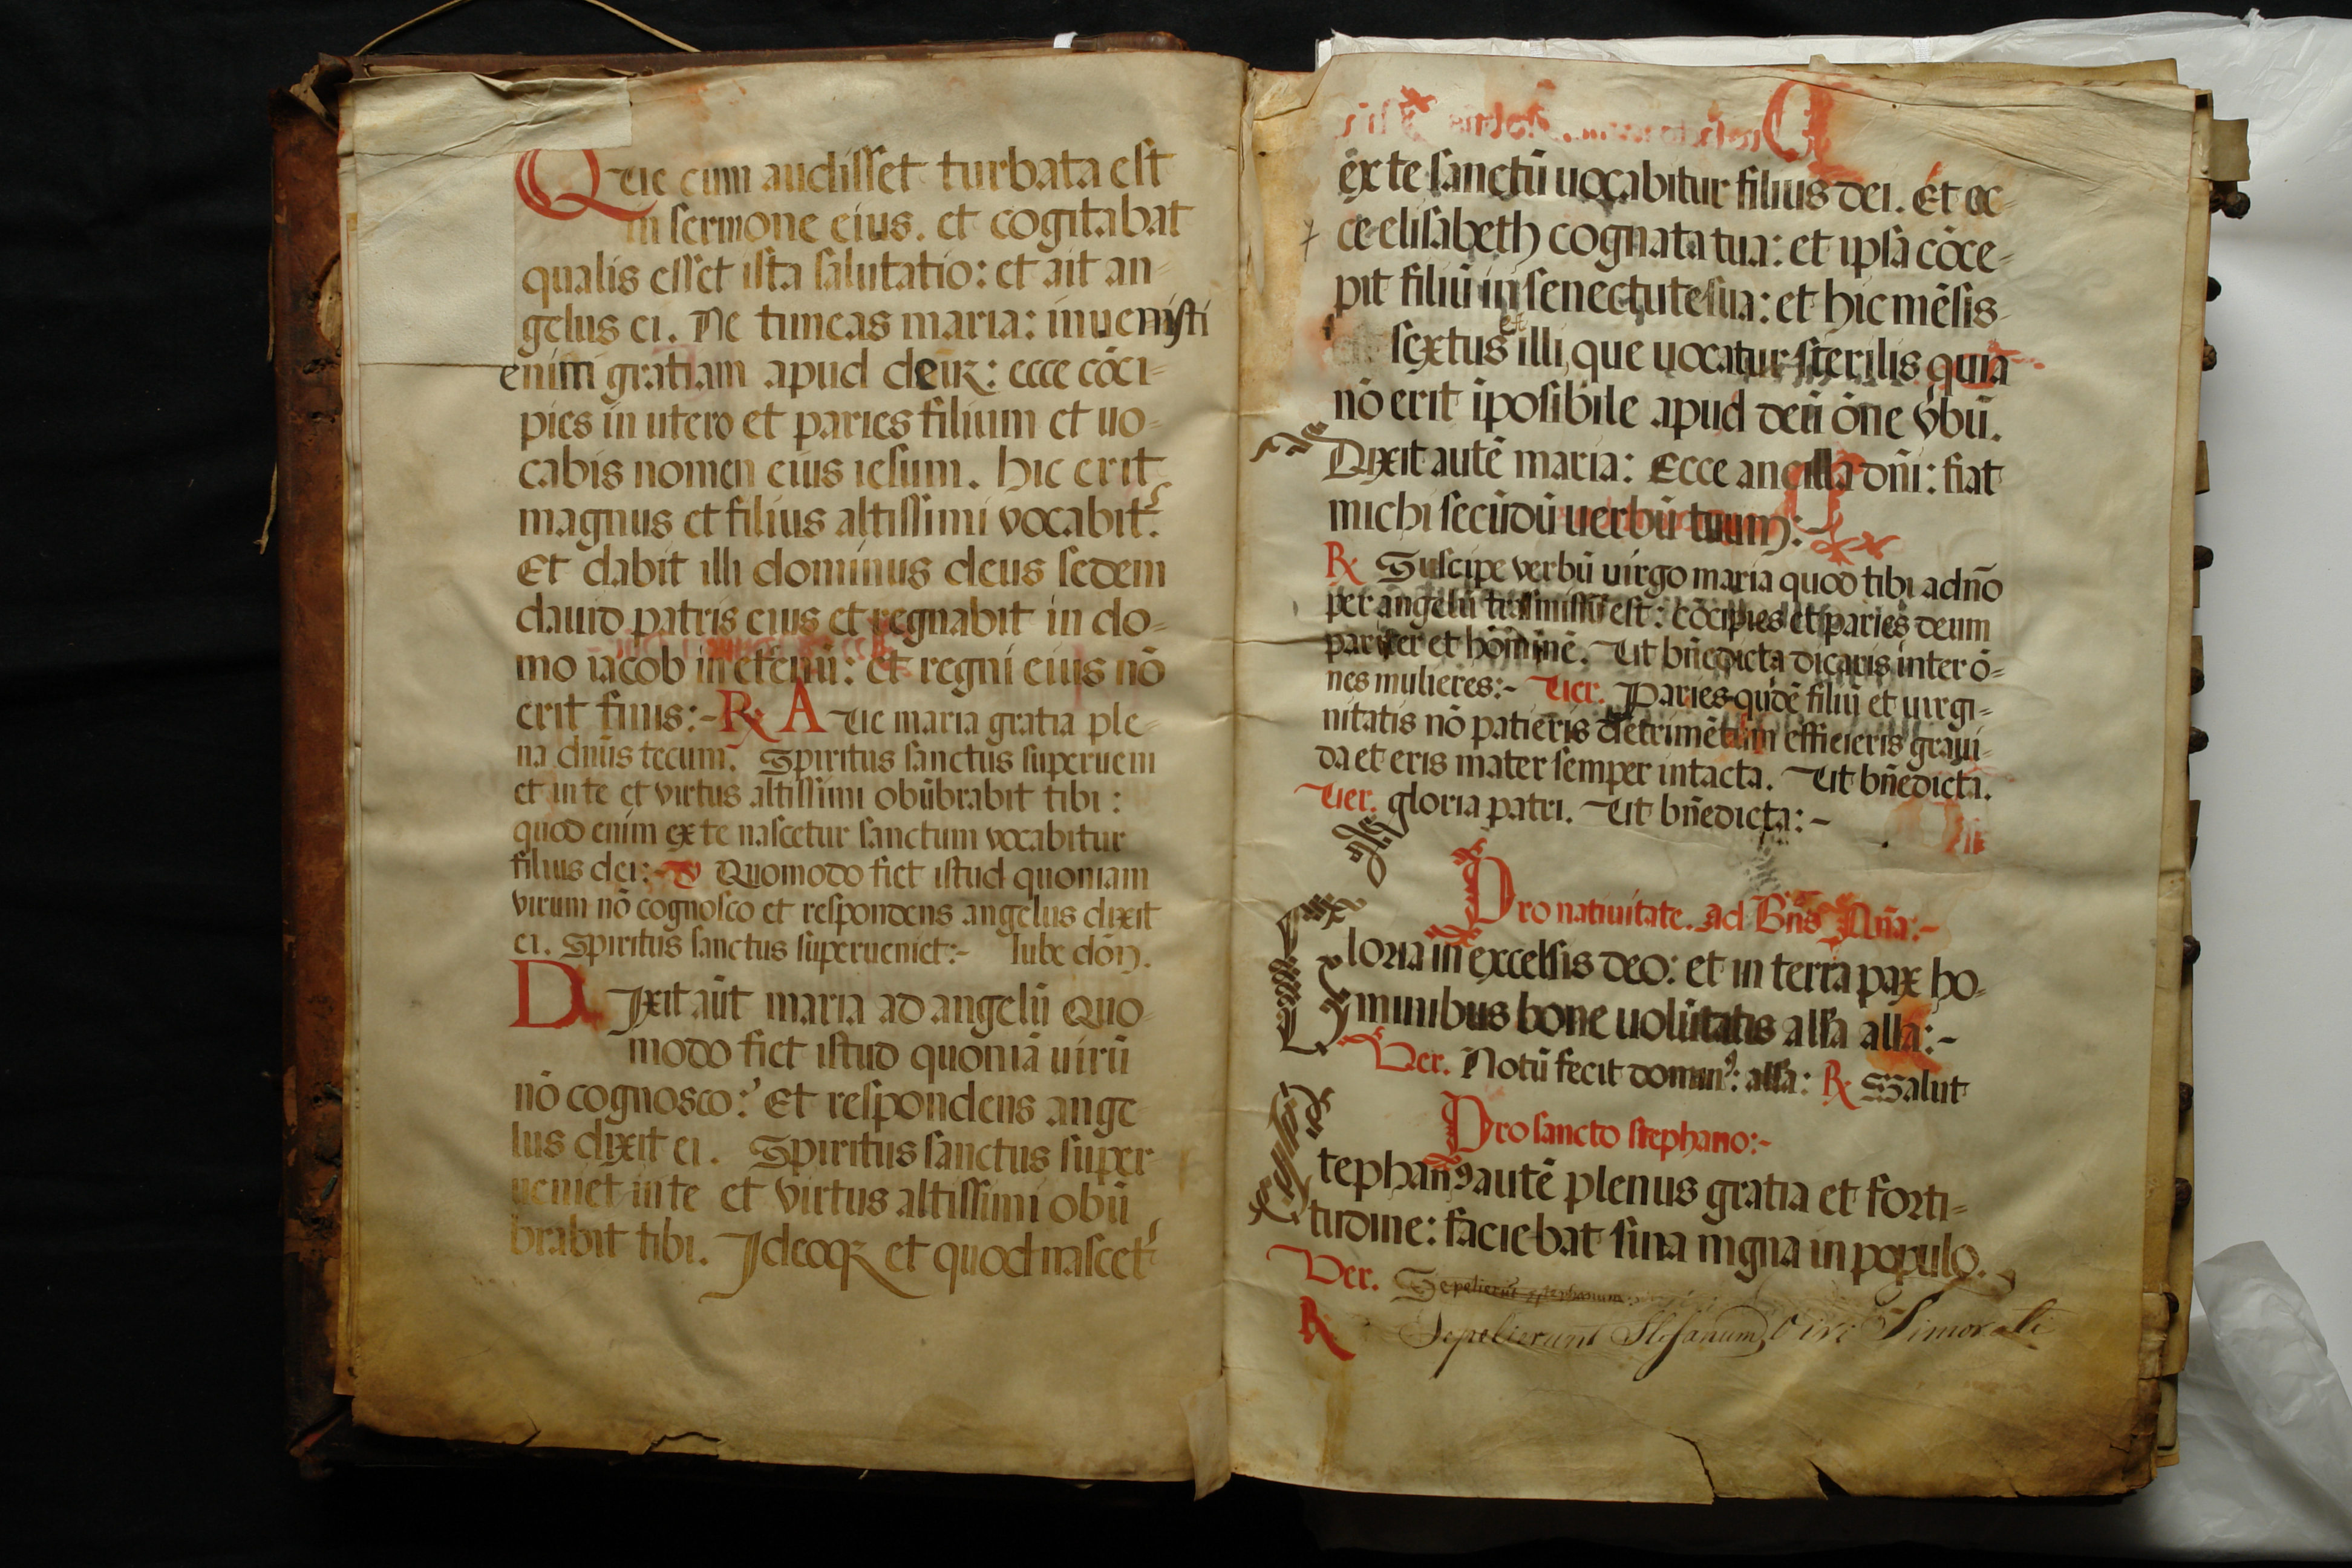 Que cum audisset turbata est
in sermone eius. et cogitabat
qualis esset ista salutatio: et ait an-
gelus ei. Ne timeas maria: inuenisti
enim gratiam apud deum: ecce cōci-
pies in utero et paries filium et uo-
cabis nomen eius iesum. hic erit
magnus et filius altissimi vocabit᷑.
Et dabit illi dominus deus sedem
dauid patris eius et regnabit in do-
mo iacob in eternū: et regni eius nō
erit finis:- ℟ Aue maria gratia ple-
na dn̄us tecum. Spiritus sanctus superueni
et in te et virtus altissimi obūbrabit tibi:
quod enim ex te nascetur sanctum vocabitur
filius dei:- ℣ Quomodo fiet istud quoniam
virum nō cognosco et respondens angelus dixit
ei. Spiritus sanctus superueniet:- Iube dōn.
Dixit aūt maria ad angelū Quo-
modo fiet istud quoniā uirū
nō cognosco: Et respondens ange
lus dixit ei. Spiritus sanctus super
ueniet in te et virtus altissimi obū
brabit tibi. Ideoqꝫ et quod nascet᷑
ex te sanctū uocabitur filius dei. Et ec-
ce elisabeth cognata tua: et ipsa cōce-
pit filiū in senectute sua: et hic mēsis
sextus est illi, que uocatur sterilis quia
nō erit īposibile apud deū ōne vbū.
Dixit autē maria: Ecce ancilla dn̄i: fiat
michi secūdū uerbū tuum:-
℟ Suscipe verbū uirgo maria quod tibi a dn̄o
per angelū trāsmissū est: cōcipies et paries deum
pariter et hominē. Ut bn̄edicta dicaris inter ō-
nes mulieres:- Uer. Paries qudē filiū et uirgi-
nitatis nō patieris detrimētum efficieris graui-
da et eris mater semper intacta. Ut bn̄edicta.
Uer. gloria patri. Ut bn̄edicta:-
Pro natiuitate. ad Bn̄s An̄a:-
Gloria in excelsis deo: et in terra pax ho-
minibus bone uolūtatis alła alła:-
Ver. Notū fecit dominꝰ: alła: ℟ Salut
Pro sancto stephano:-
Stephanꝰ autē plenus gratia et forti-
tudine: faciebat sina mgna in populo.
Ver. Sepelierūt stephanum
℟ Sepelierunt Stefanum Viri Timorati